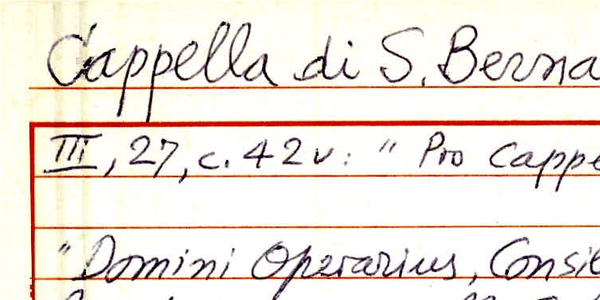 Cappella di S. Berna
III, 27, c. 42v: " Pro Cappe
" Domini Operarius, Consil